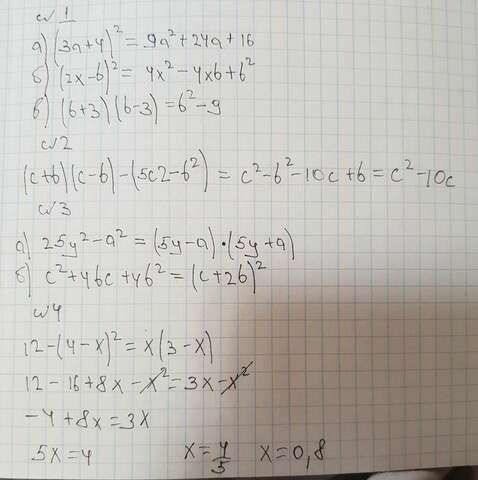 №1
а) (3a+4)² = 9a²+24a+16
б) (2x-b)² = 4x²-4xb+b²
в) (b+3)(b-3) = b²-9
№2
(c+b)(c-b)-(5c2-b²) = c²-b²-10c+b = c²-10c
№3
а) 25y²-a² = (5y-a)·(5y+a)
б) c²+4bc+4b² = (c+2b)²
№4
12-(4-x)² = x(3-x)
12-16+8x-x² = 3x-x²
-4+8x=3x
5x=4 x=4/5 x=0,8